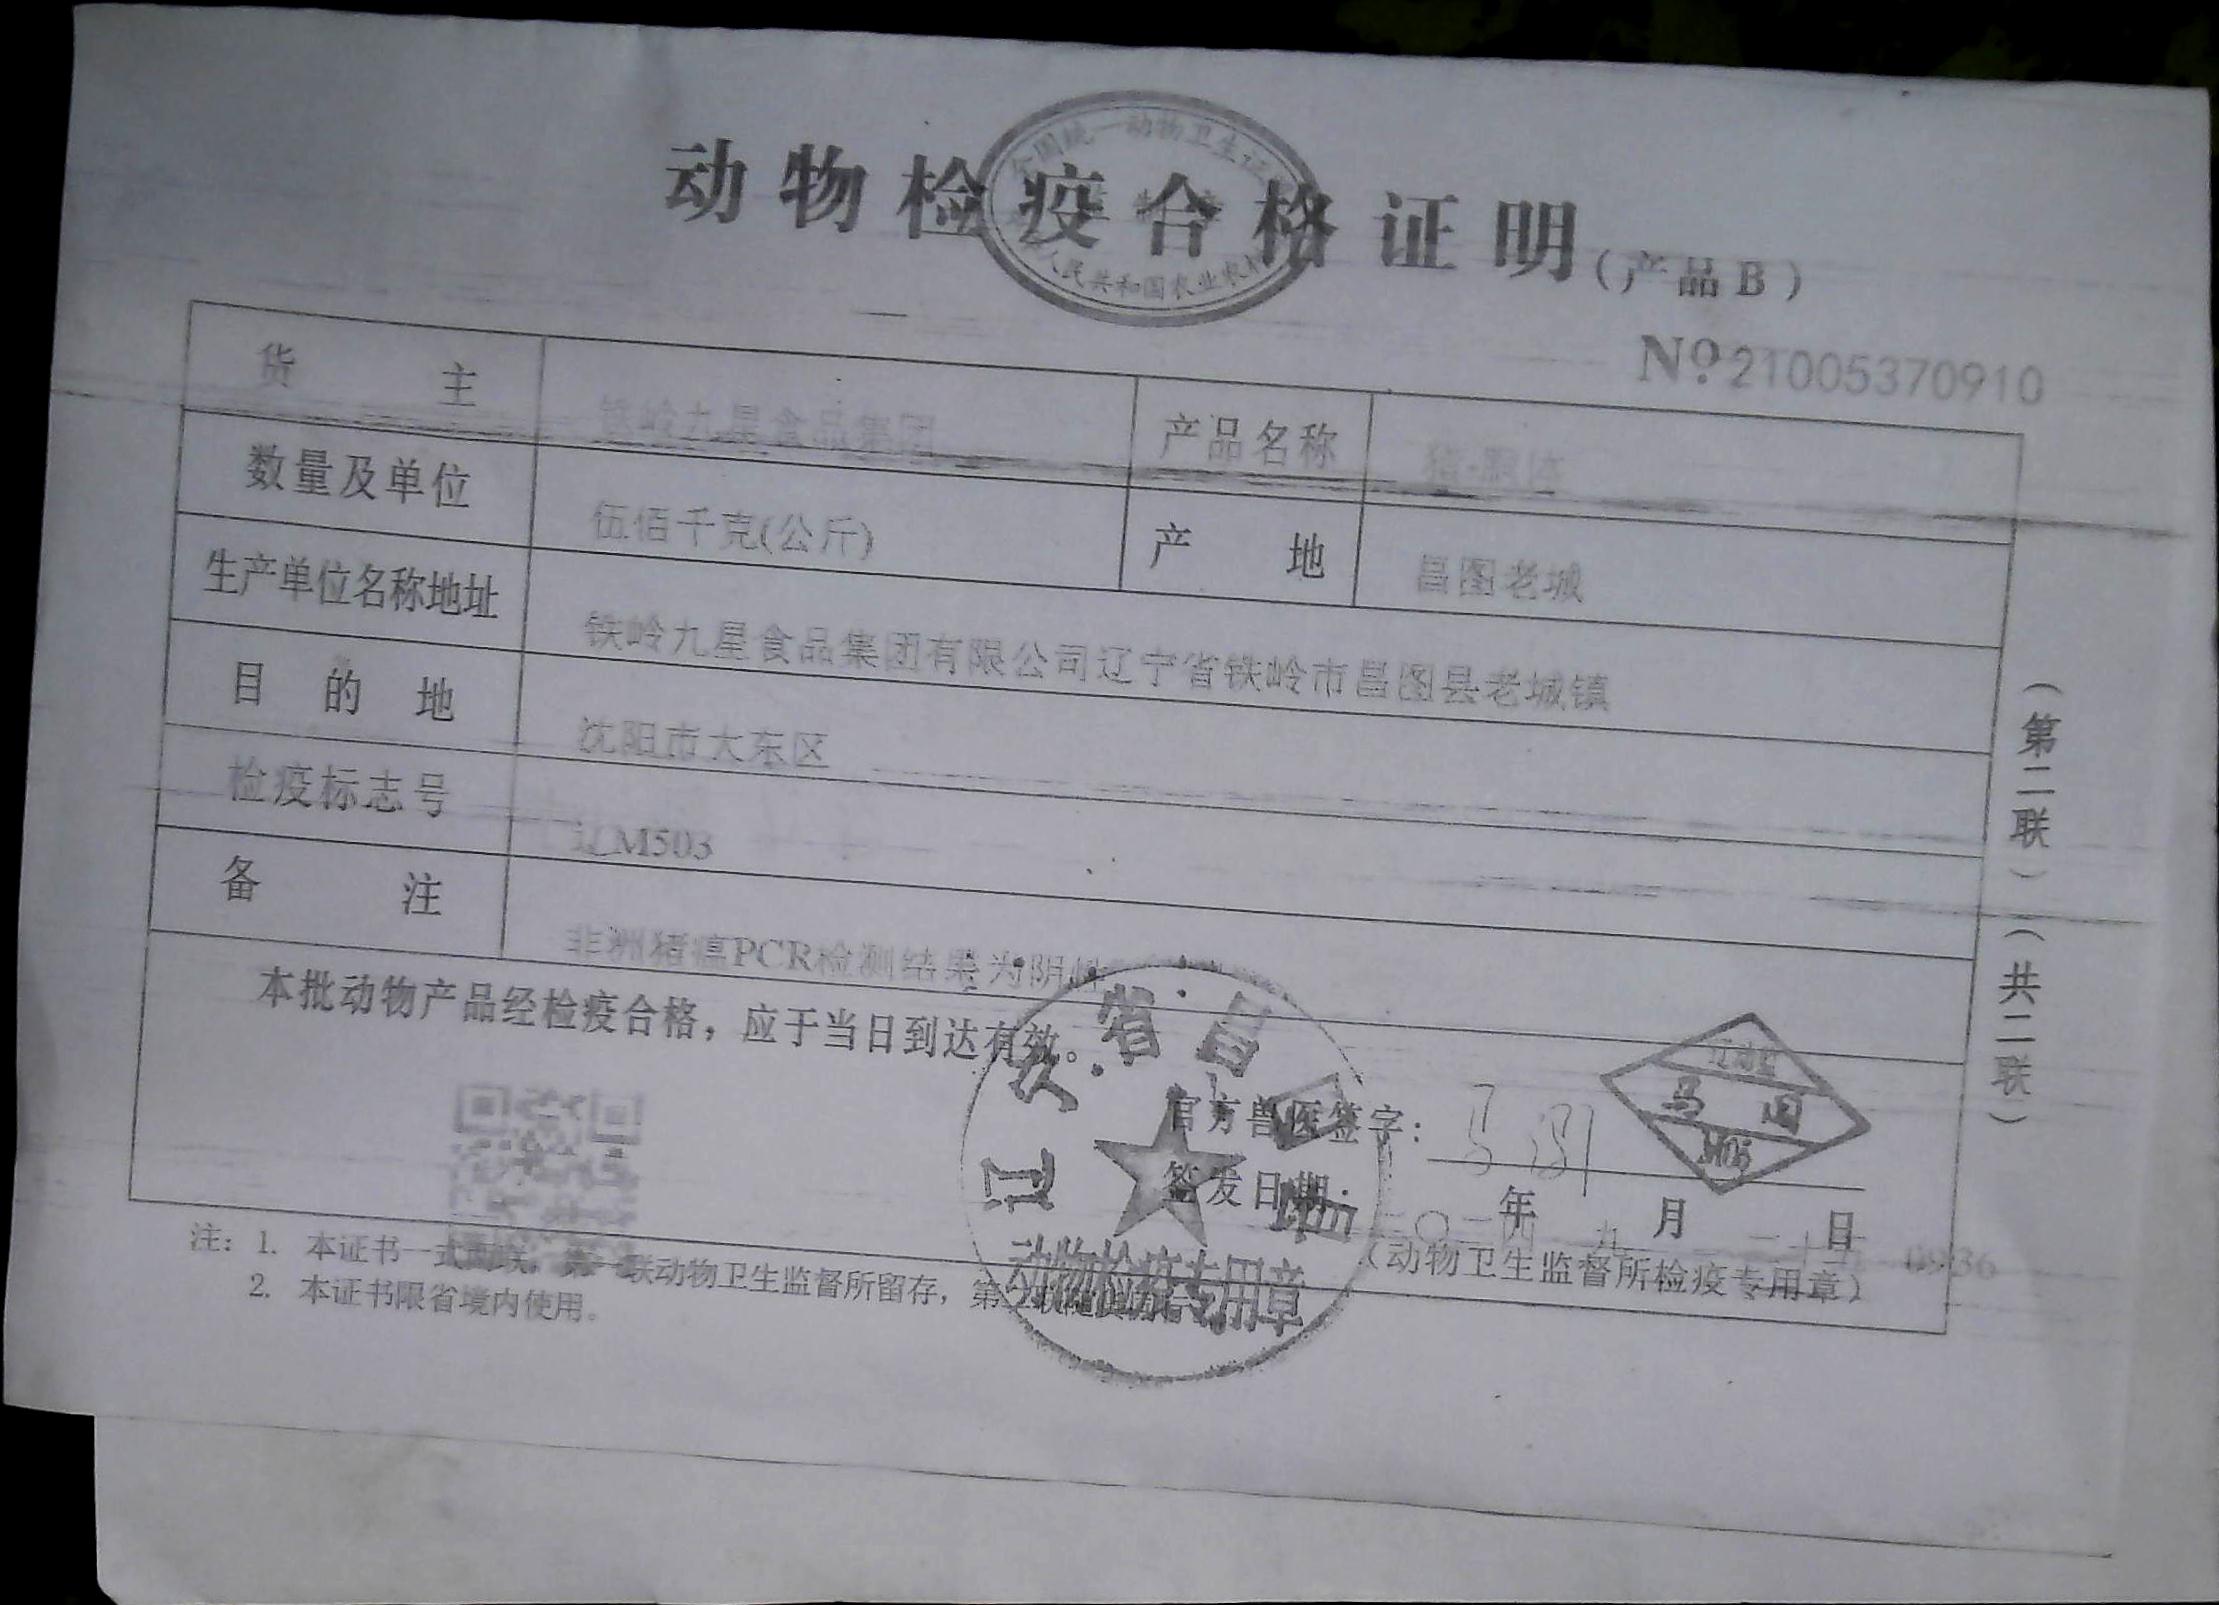 动物检疫合格证明（产品B）
全国统一动物卫生证
人民共和国农业农村
№ 21005370910
货主 铁岭九星食品集团 产品名称 猪·胴体
数量及单位 伍佰千克(公斤) 产地 昌图老城
生产单位名称地址 铁岭九星食品集团有限公司辽宁省铁岭市昌图县老城镇
目的地 沈阳市大东区
检疫标志号 辽M503
备注 非洲猪瘟PCR检测结果为阴性
本批动物产品经检疫合格，应于当日到达有效。
辽宁省昌图县
动物检疫专用章
官方兽医签字：
签发日期： 二〇二四年九月日 09:36
（动物卫生监督所检疫专用章）
注：1. 本证书一式两联，第一联动物卫生监督所留存，第二联
2. 本证书限省境内使用。
（第二联）（共二联）